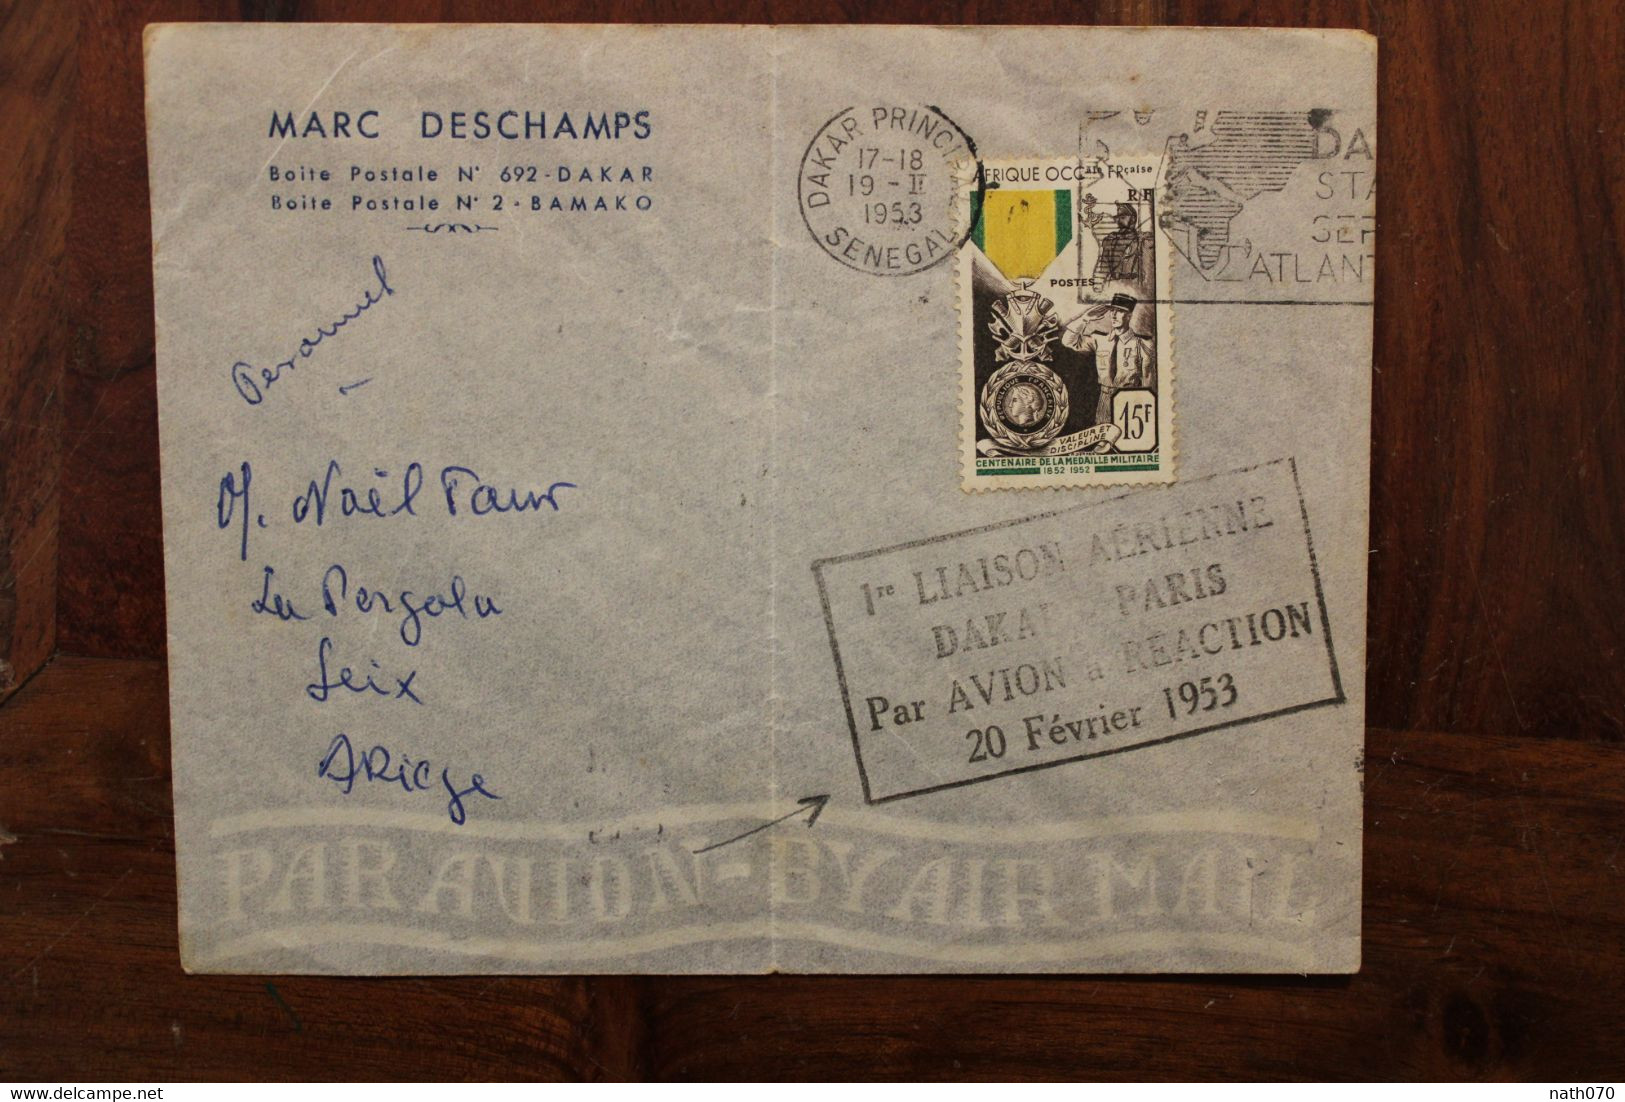 MARC DESCHAMPS
Boite Postale N° 692 - DAKAR
Boite Postale N° 2 - BAMAKO
DAKAR PRINCIPAL
17-18
19 - II
1953
SENEGAL
DA
STA
SER
ATLANT
AFRIQUE OCCale FRçaise
RF
POSTES
REPUBLIQUE FRANÇAISE
VALEUR ET
DISCIPLINE
15F
CENTENAIRE DE LA MEDAILLE MILITAIRE
1852 1952
M. Noël Faur
La Pergola
Seix
ARiege
1re LIAISON AÉRIENNE
DAKAR - PARIS
Par AVION à RÉACTION
20 Février 1953
PAR AVION - BY AIR MAIL
nath070